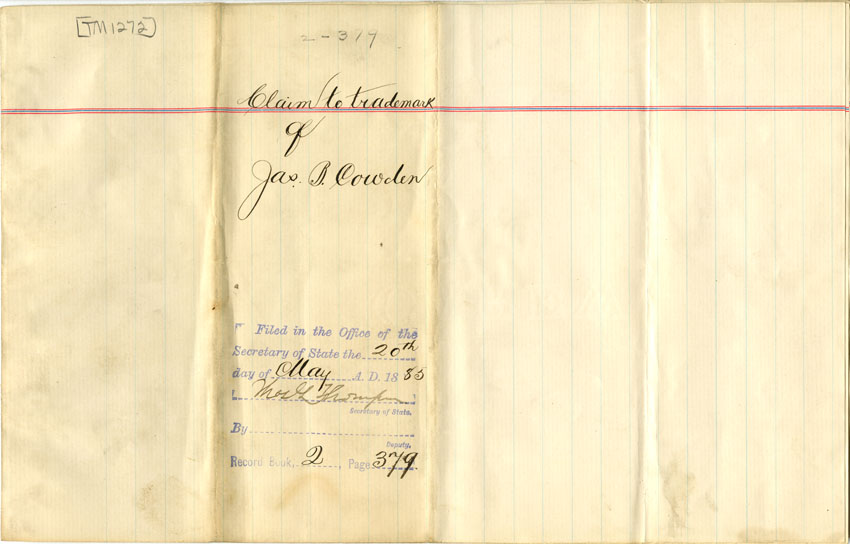 [TM1272]
2-317
Claim to trademark
of
Jas. B. Cowden
Filed in the Office of the
Secretary of State the 20th
day of May A. D. 1885
Thos L Thompson
Secretary of State.
By
Deputy.
Record Book, 2, Page 379.